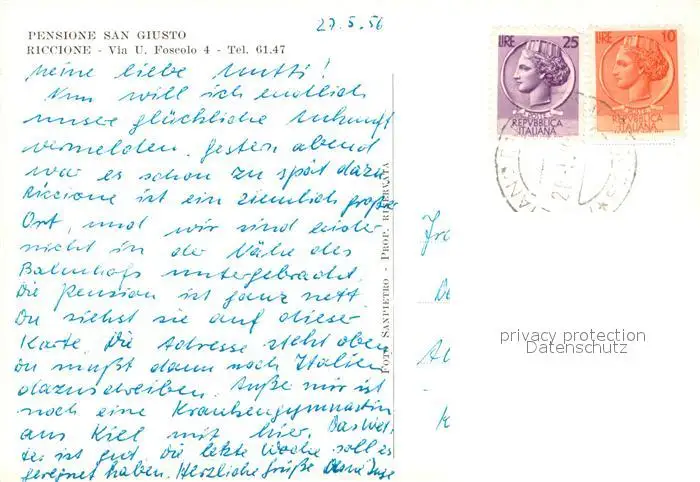 27.5.56
PENSIONE SAN GIUSTO
RICCIONE - Via U. Foscolo 4 - Tel. 61.47
Meine liebe Mutti!
Nun will ich endlich
unsere glückliche Ankunft
vermelden. Gestern abend
war es schon zu spät dazu.
Riccione ist ein ziemlich großer
Ort, und wir sind leider
nicht in der Nähe des
Bahnhofs untergebracht.
Die Pension ist ganz nett.
Du siehst sie auf dieser
Karte. Die Adresse steht oben
du mußt dann noch Italien
dazuschreiben. Außer mir ist
noch eine Krankengymnastin
aus Kiel mit hier. Das Wet-
ter ist gut, die letzte Woche soll es
geregnet haben. Herzliche Grüße Deine Inge
FOTO SANPIETRO - PROP. RISERVATA
LIRE 25
POSTE
REPVBBLICA
ITALIANA
LIRE 10
POSTE
REPVBBLICA
ITALIANA
privacy protection
Datenschutz